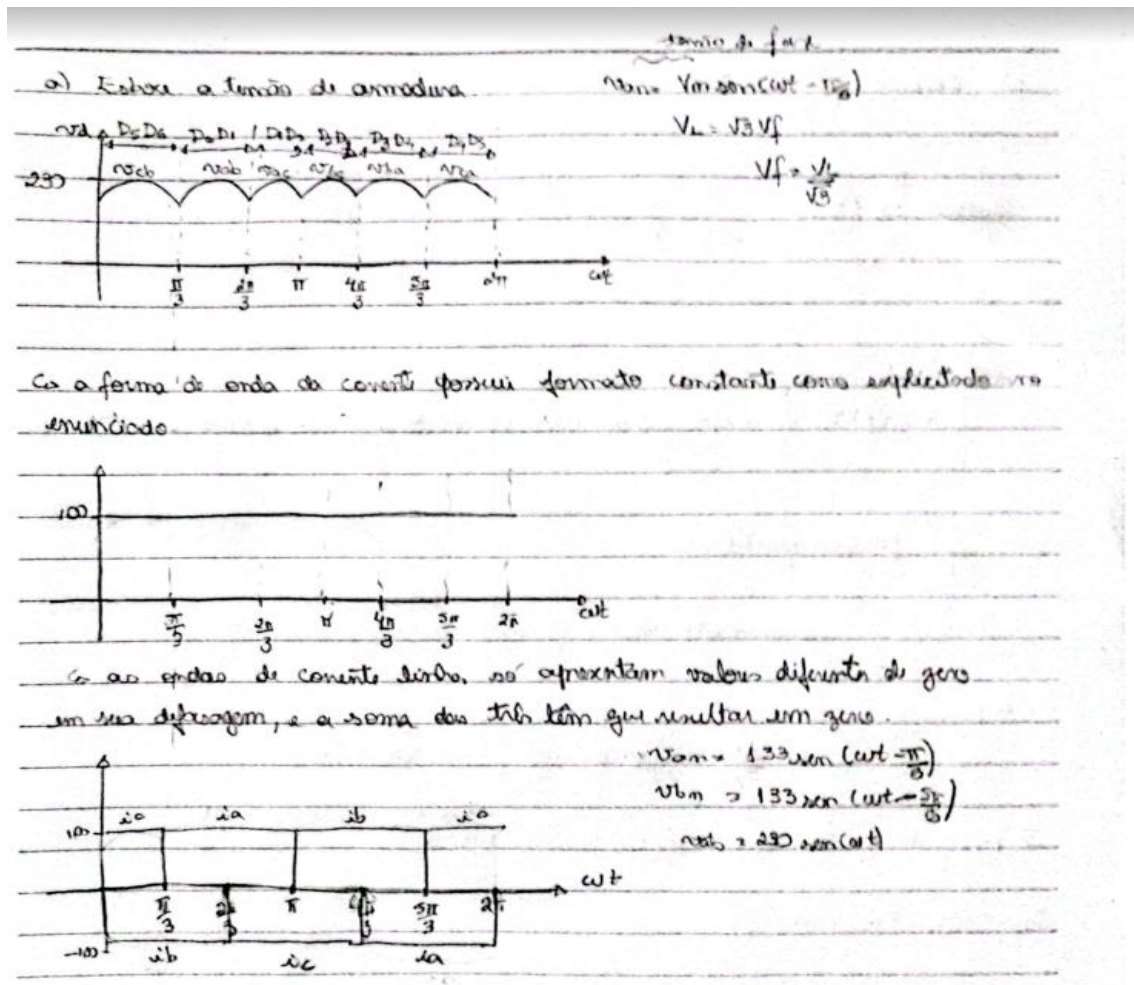 tensão de fase
a) Esboce a tensão de armadura.
van = Vm sen(wt - π/6)
VL = √3 Vf
Vf = VL/√3
vd D5D6 D6D1 D1D2 D2D3 D3D4 D4D5
230 vcb vab vac vbc vba vca
π/3 2π/3 π 4π/3 5π/3 2π wt
↳ a forma de onda da corrente possui formato constante, como explicitado no
enunciado.
100
π/3 2π/3 π 4π/3 5π/3 2π wt
↳ as ondas de corrente linha, só apresentam valores diferente de zero
em sua defasagem, e a soma das três têm que resultar em zero.
van = 133 sen (wt - π/6)
vbn = 133 sen (wt - 5π/6)
vab = 230 sen(wt)
100 ic ia ib ic
π/3 2π/3 π 4π/3 5π/3 2π wt
-100 ib ic ia